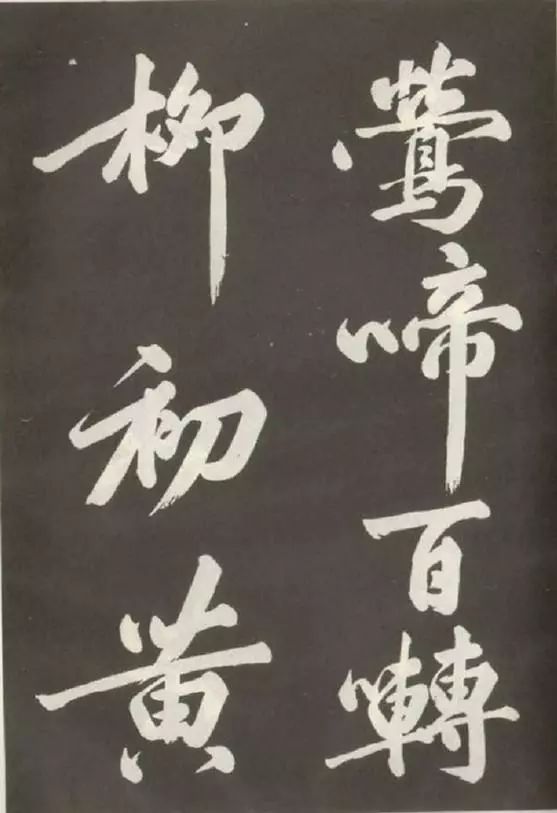 鶯啼百囀
柳初黄